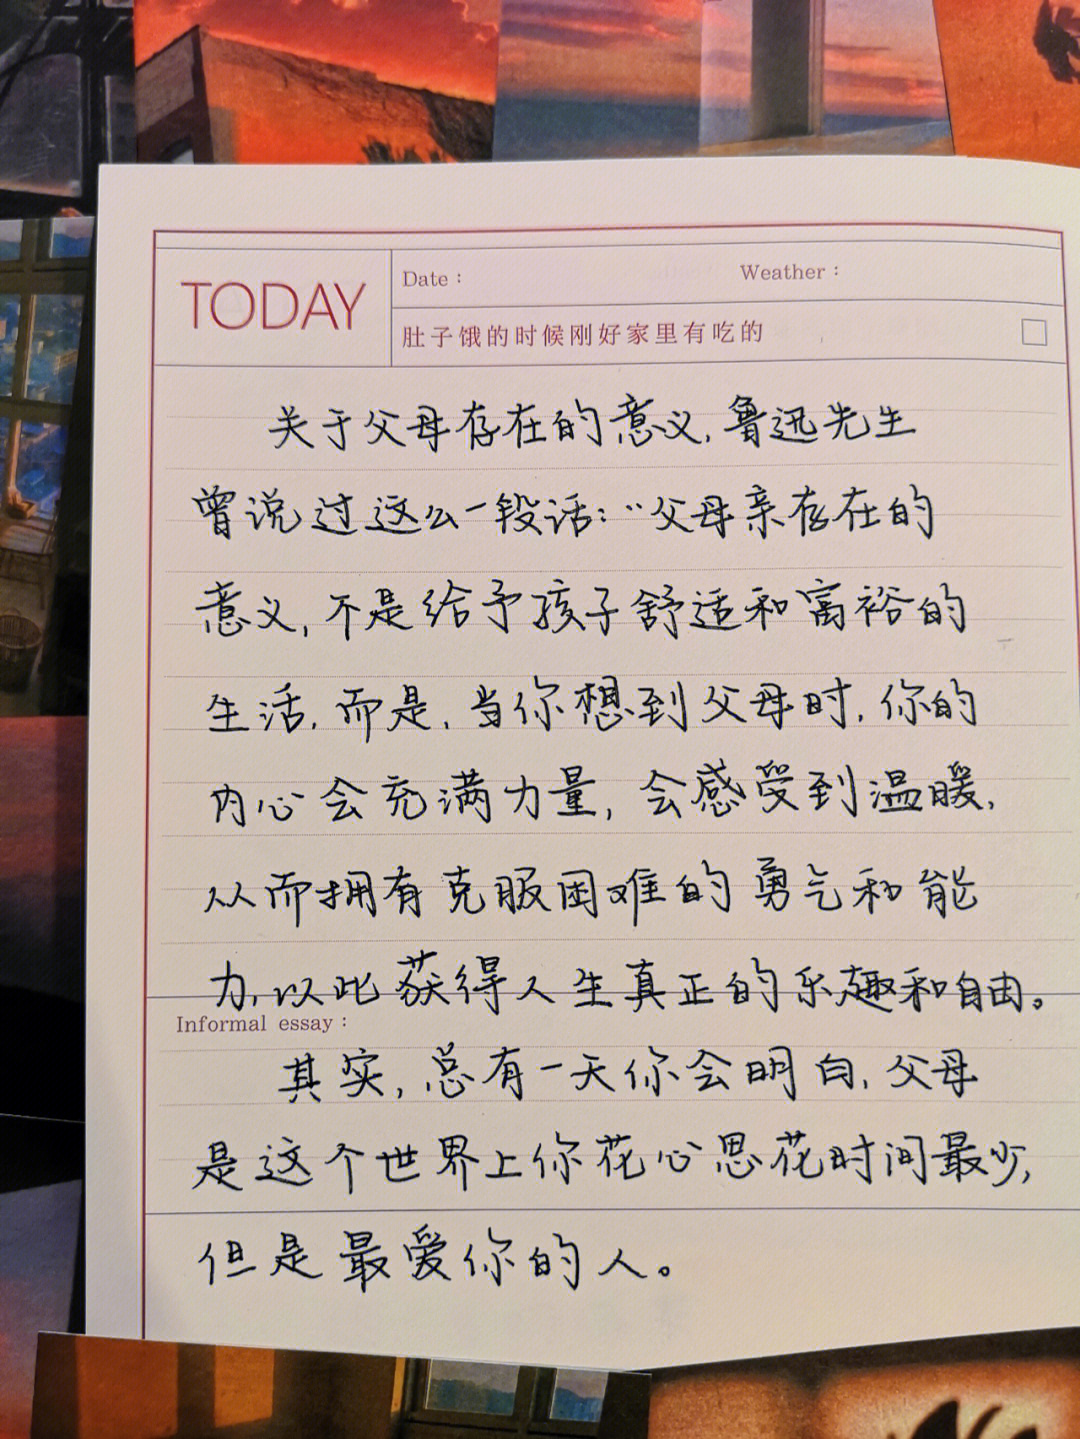 TODAY
Date：
Weather：
肚子饿的时候刚好家里有吃的
关于父母存在的意义,鲁迅先生
曾说过这么一段话：“父母亲存在的
意义,不是给予孩子舒适和富裕的
生活,而是,当你想到父母时,你的
内心会充满力量,会感受到温暖,
从而拥有克服困难的勇气和能
力,以此获得人生真正的乐趣和自由。
Informal essay：
其实,总有一天你会明白,父母
是这个世界上你花心思花时间最少,
但是最爱你的人。